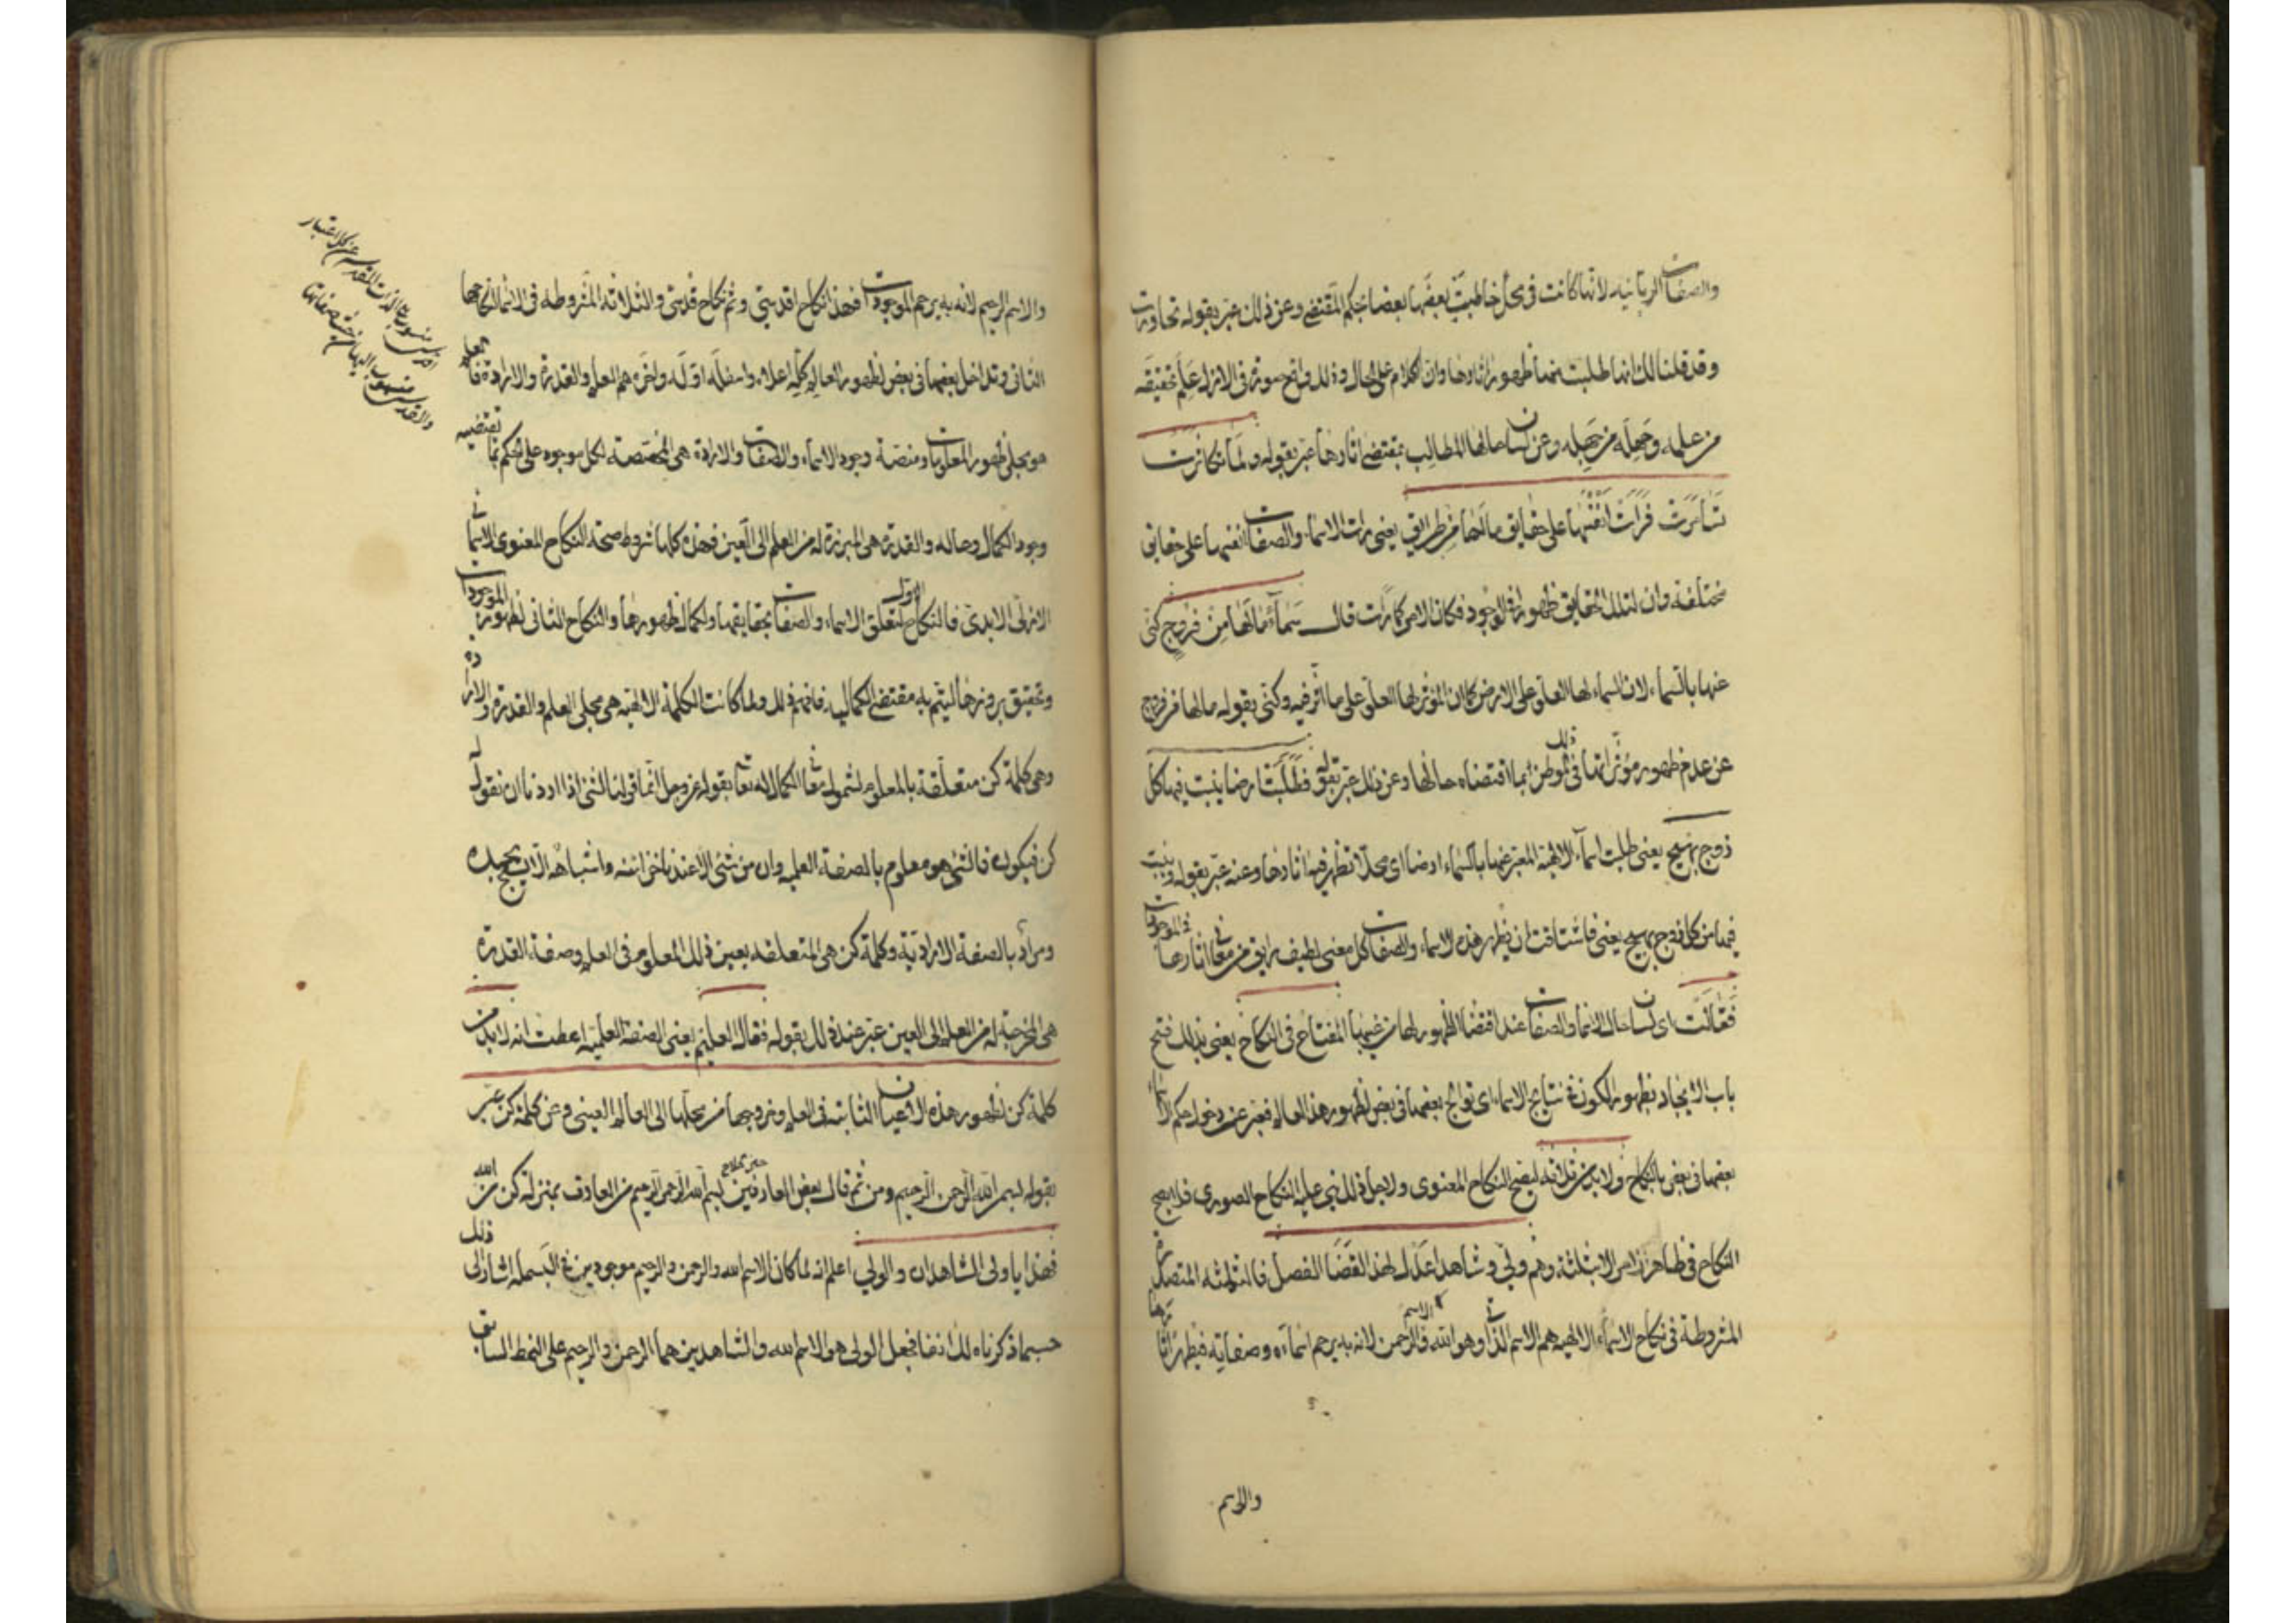 والصفات الربانيه لانها كانت في محل خاطبت بعضها بعضا بحكم المقتضى وعن ذلك عبر بقوله تحاورت
وقد قلنا لك انها طلبت منها ظهور اثارها وان الكلام على الحال وذلك واضح سورته في الازل علم حقيقة
من علمه وجهله من جهله وعن لسان حالها المطالب بمقتضى اثارها عبر بقوله ولما تكاثرت
فرات انفسها على حقايق ما لها من طريق يعني رات الاسماء والصفات انفسها على حقايق
مختلفة وان لتلك الحقايق ظهورا في الوجود فكان الامر كما رات قال سماء ما لها من فروج كنى
عنها بالسماء لان السماء لها العلو على الارض كما ان المؤثر لها العلو على ما اثر فيه وكنى بقوله ما لها من فروج
عن عدم ظهور مؤثراتها في ذلك الموطن بما اقتضاه حالها وعن ذلك عبر بقوله فطلبت ارضا ينبت فيها كل
زوج بهيج يعني طلبت اسماء الالهية المعبر عنها بالسماء ارضا اى محلا تظهر فيه اثارها وعنه عبر بقوله ينبت
فيها من كل زوج بهيج يعني فاشتاقت ان يظهر هذه الاسماء والصفات كل معنى لطيف رايق من معاني اثارها في الموجودات
فقالت اى لسان حال الاسما والصفات عند اقتضا الظهور لها من غيبها المفتاح في النكاح يعني بذلك فتح
باب الايجاد بظهور الكون في نتايج الاسماء اى توالج بعضها في بعض لظهور هذا العالم فعبر عن دخول حكم الاسماء
بعضها في بعض بالنكاح ولا بد من ثلاثه ليصح النكاح المعنوى ولاجل ذلك بني عليه النكاح الصورى فلا يصح
النكاح في ظاهر الا بثلثة وهم ولي وشاهدا عدل لهذا القضا الفصل فالثلثه
المشروطة في نكاح الاسماء الالهيه هم الاسم الذاتي وهو الله والاسم الرحمن لانه به يرحم اسماءه وصفاته فيظهر اثارها
والاسم
والاسم الرحيم لانه به يرحم الموجودات فهذا نكاح اقدسي وثم نكاح قدسي والثلاثة المشروطه في الاسماء
الثاني وتداخل بعضها في بعض لظهور العالم كله اعلاه واسفله اوله واخره هم العلم والقدرة والارادة فالعلم
هو مجلي ظهور المعلومات ومنصة وجود الاسماء والصفات والارادة هي المخصصة لكل موجود على حكم ما تقتضيه
وجود الكمال وحاله والقدرة هي المبرزة له من العلم الى العين فهذه كلها شروط صحة النكاح المعنوى الاسمائي
الازلي الابدى فالنكاح الاول لتعلق الاسماء والصفات بحقايقها ولكمال ظهورها والنكاح الثاني لظهور الموجودات
وتحقيق بروزها ليتم به مقتضى الكمال فافهم ذلك ولما كانت الكلمة الالهيه هي مجلى العلم والقدرة والارادة
وهي كلمة كن متعلقة بالمعلوم لشموله معاني الكمال لانه تعالى بقوله عز وجل انما قولنا لشئ اذا اردناه ان نقول له
كن فيكون فالشئ هو معلوم بالصفة العلميه وان من شئ الا عندنا خزائنه واشباهه الا يسبح بحمده
ومراد بالصفة الارادية وكلمة كن هي المتعلقه بعين ذلك المعلوم في العلم وصفة القدرة
هي المخرجة له من العلم الى العين عبر عن ذلك بقوله فقال العليم يعني الصفة العلمية اعطت انه لا بد من
كلمة كن لظهور هذه الاعيان الثابته في العلم وخروجها من محلها الى العالم العيني وعن كلمة كن عبر
بقوله بسم الله الرحمن الرحيم ومن ثم قال بعض العارفين بسم الله الرحمن الرحيم من العارف بمنزلة كن من الله
فهذا يا ولى الشاهدان والولي اعلم انه لما كان الاسم الله والرحمن والرحيم موجودين في البسملة اشار الى ذلك
حسبما ذكرناه لك انفا فجعل الولى هو الاسم الله والشاهدين هما الرحمن والرحيم على النمط السابق